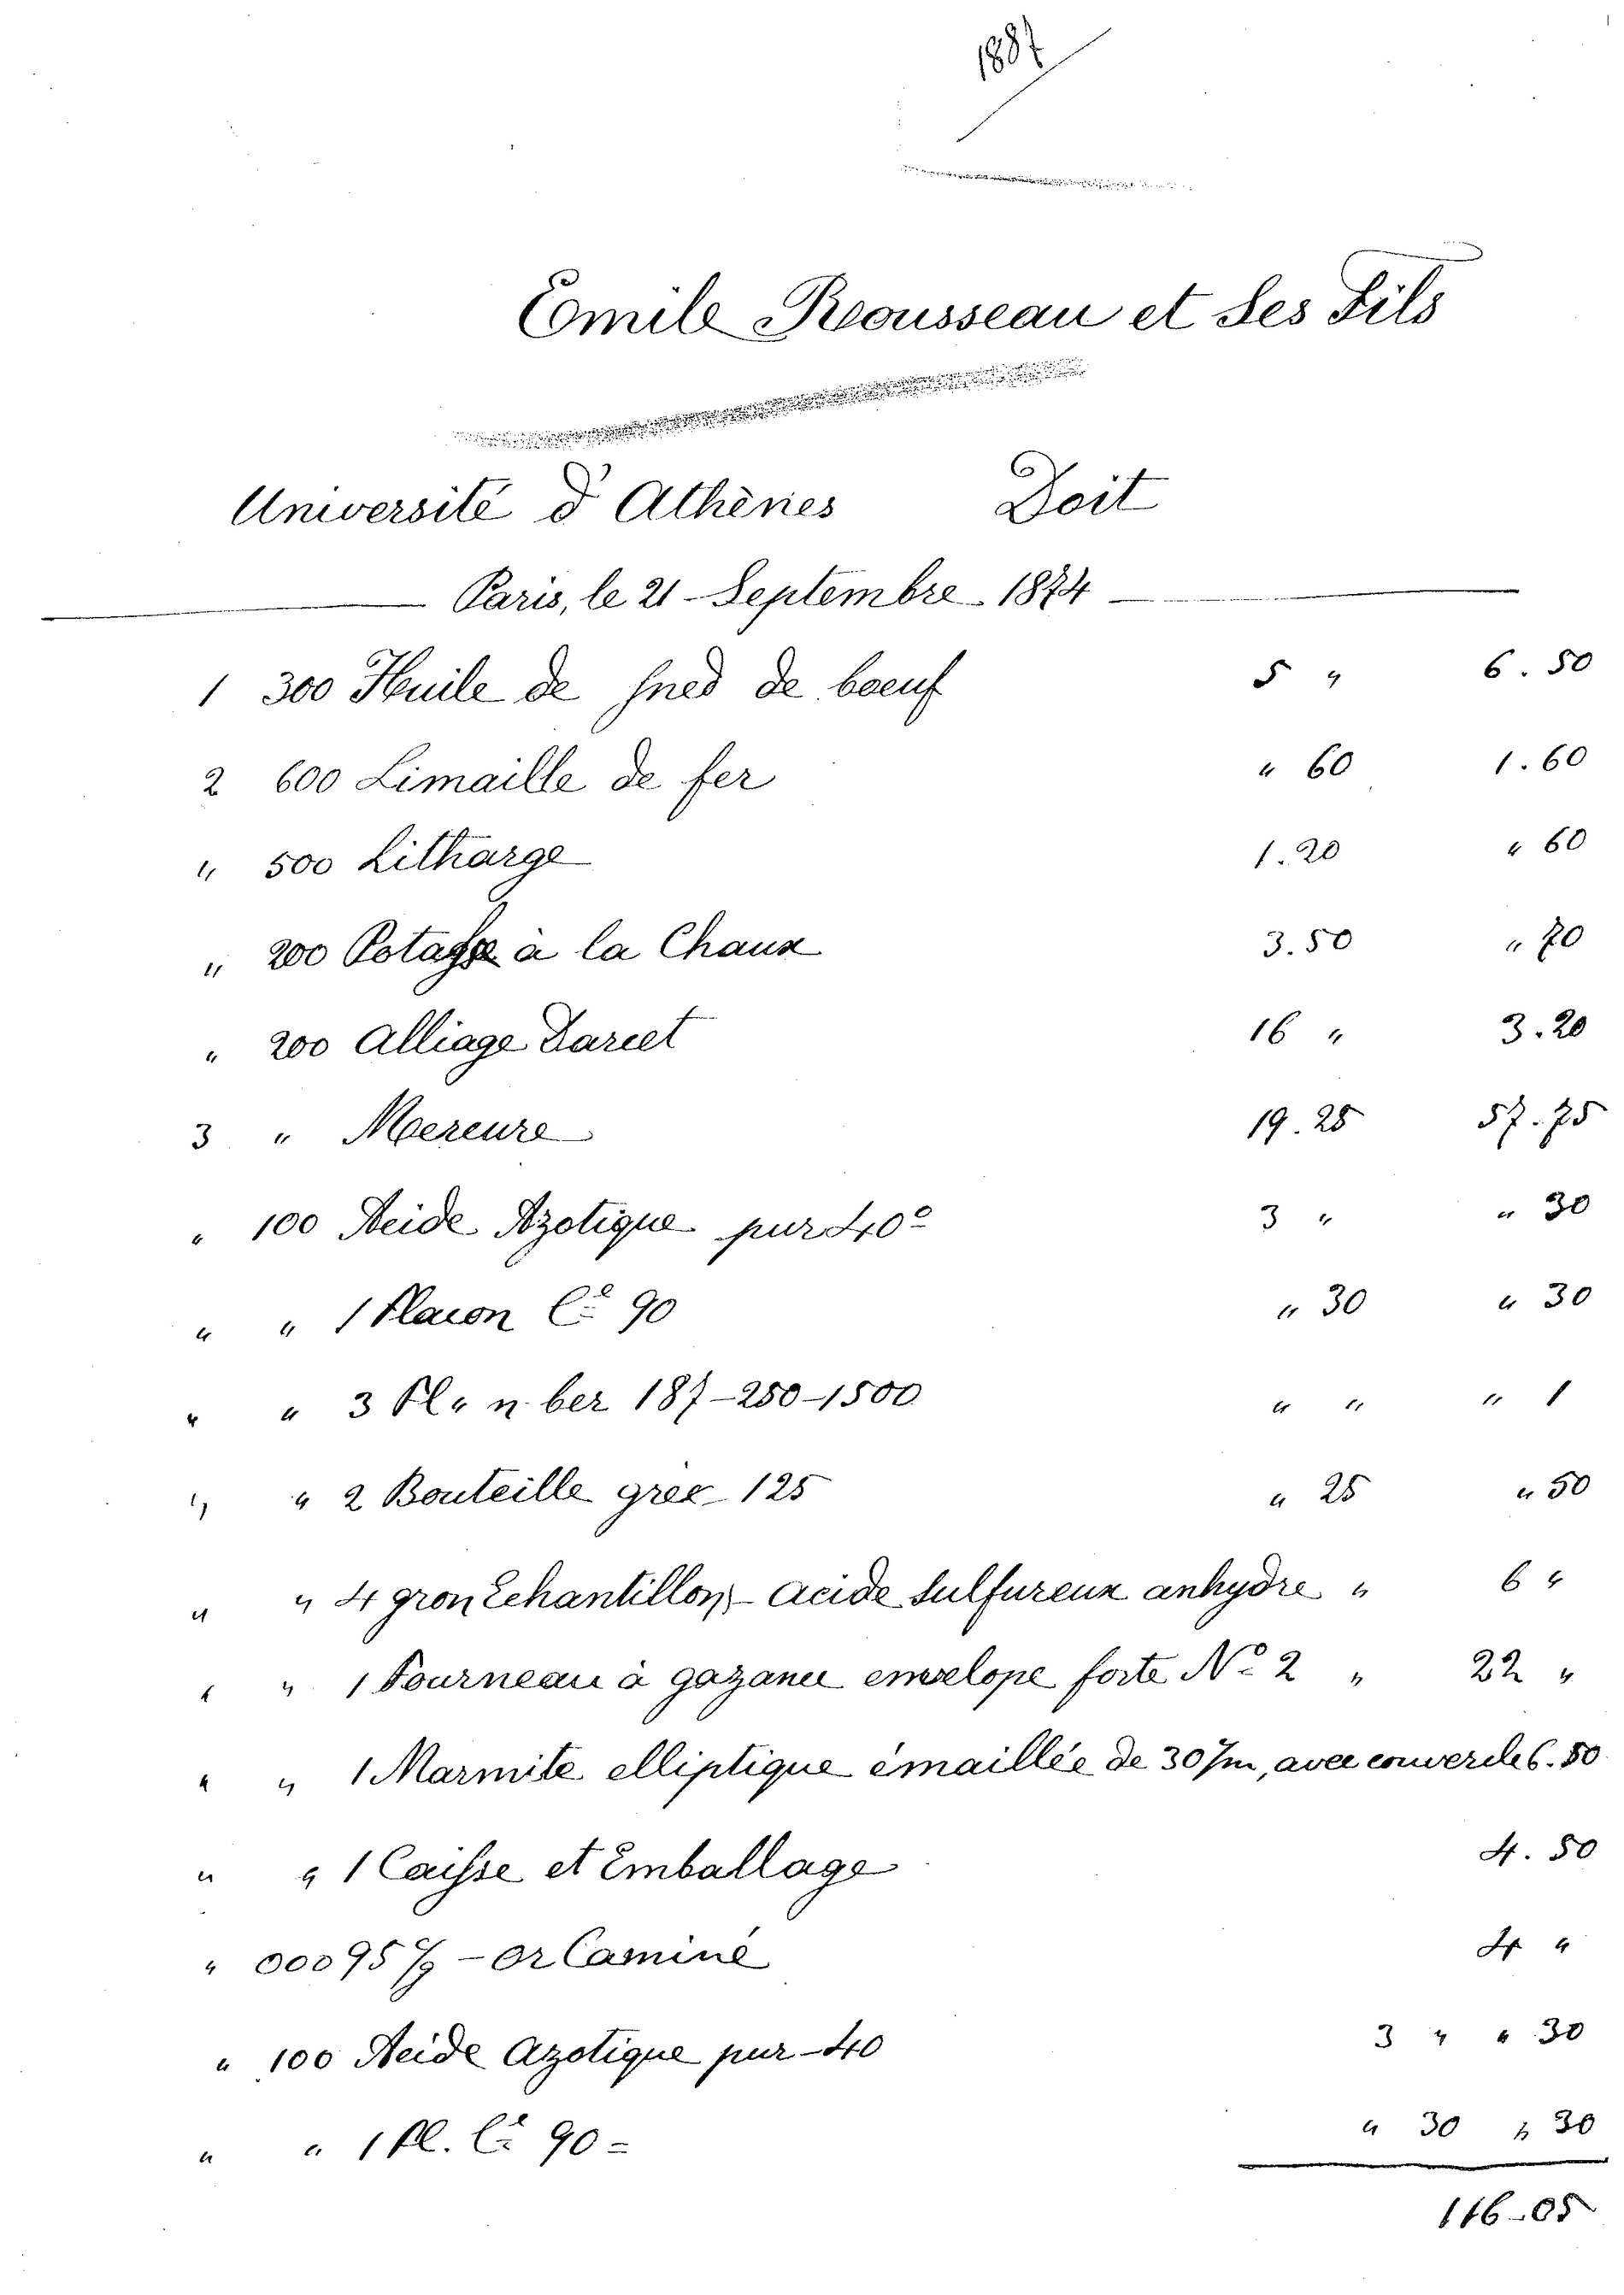 1887
Emile Rousseau et Ses Fils
Université d'Athènes Doit
Paris, le 21 - Septembre - 1874
1 300 Huile de pied de boeuf 5 " 6.50
2 600 Limaille de fer " 60 1.60
" 500 Litharge 1.20 " 60
" 200 Potasse à la Chaux 3.50 " 70
" 200 Alliage Darcet 16 " 3.20
3 " Mercure 19.25 57.75
" 100 Acide Azotique pur 40° 3 " " 30
" " 1 Flacon Ce 90 " 30 " 30
" " 3 Fl " n ber 187-250-1500 " " " 1
" " 2 Bouteille gree 125 " 25 " 50
" " 4 gron Echantillon - acide Sulfureux anhydre " 6 "
" " 1 Fourneau à gaz envelope forte No 2 " 22 "
" " 1 Marmite elliptique émaillée de 30 /m, avec couvercle 6.50
" " 1 Caisse et Emballage 4.50
" 00095 - Or Laminé 4 "
" 100 Acide Azotique pur - 40 3 " " 30
" " 1 Fl. Ce 90 = " 30 " 30
116-05